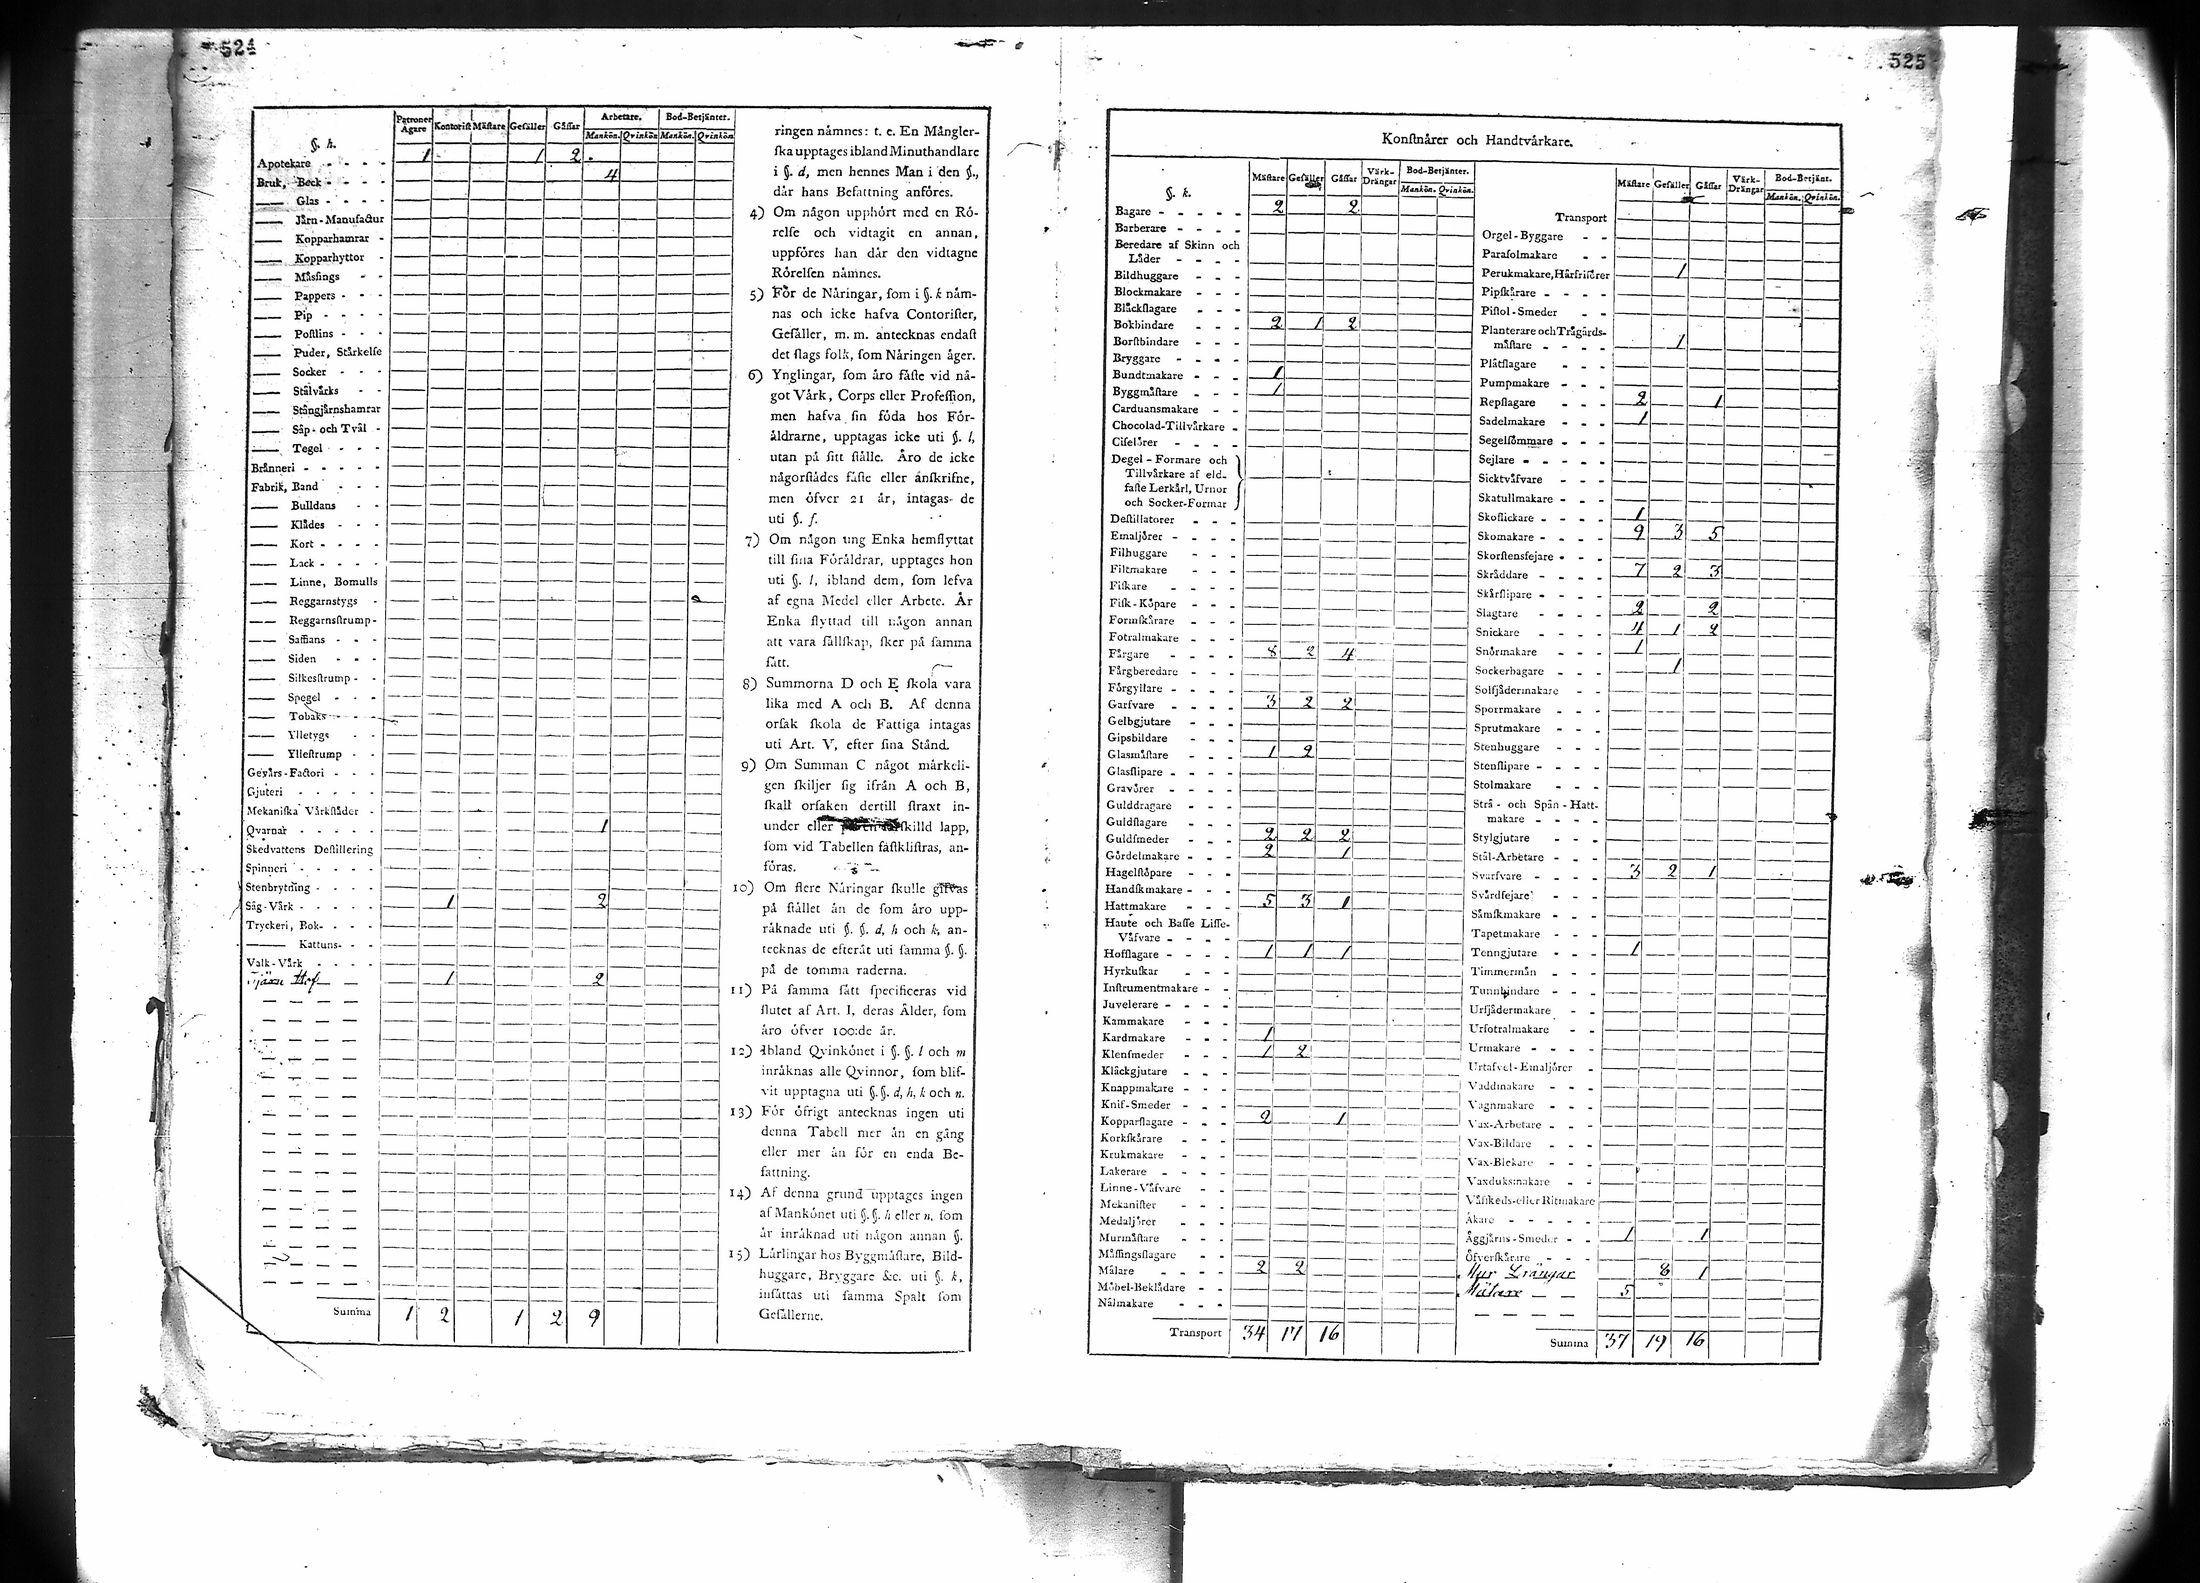 524
Patroner Ägare Kontorist Mästare Gesäller Gåssar Arbetare. Bod-Betjänter.
Mankön. Qvinkön Mankön. Qvinkön.
§. h.
Apotekare - - - - 1 1 2
Bruk, Beck - - - - 4
—— Glas - - - -
—— Jårn-Manufactur
—— Kopparhamrar -
—— Kopparhyttor -
—— Måsfings - -
—— Pappers - - -
—— Pip - - - -
—— Poſtlins - - -
—— Puder, Stårkelſe
—— Socker - - -
—— Stålvårks - -
—— Stångjårnshamrar
—— Såp- och Tvål -
—— Tegel - - -
Brånneri - - - - -
Fabrik, Band - - -
—— Bulldans - -
—— Klådes - - -
—— Kort - - - -
—— Lack - - - -
—— Linne, Bomulls
—— Reggarnstygs -
—— Reggarnsſtrump -
—— Saffians - - -
—— Siden - - -
—— Silkesſtrump - -
—— Spegel - - -
—— Tobaks - - -
—— Ylletygs - -
—— Ylleſtrump - -
Gevårs-Factori - - -
Gjuteri - - - - -
Mekaniſka Vårkſtåder -
Qvarnar - - - - - 1
Skedvattens Deſtillering
Spinneri - - - - -
Stenbrytning - - - -
Såg-Vårk - - - - - 1 2
Tryckeri, Bok- - - -
—— Kattuns- - -
Valk-Vårk - - - -
Tjäru Hof 1 2
Summa 1 2 1 2 9
ringen nåmnes: t. e. En Mångler-
ſka upptages ibland Minuthandlare
i §. d, men hennes Man i den §.,
dår hans Befattning anföres.
4) Om någon upphört med en Rö-
relſe och vidtagit en annan,
uppföres han dår den vidtagne
Rörelſen nåmnes.
5) För de Nåringar, ſom i §. k nåm-
nas och icke hafva Contoriſter,
Geſåller, m. m. antecknas endaſt
det ſlags folk, ſom Nåringen åger.
6) Ynglingar, ſom åro fåſte vid nå-
got Vårk, Corps eller Profeſſion,
men hafva ſin föda hos För-
åldrarne, upptagas icke uti §. l,
utan på ſitt ſtålle. Åro de icke
någorſtådes fåſte eller ånſkrifne,
men öfver 21 år, intagas de
uti §. f.
7) Om någon ung Enka hemflyttat
till ſina Föråldrar, upptages hon
uti §. l, ibland dem, ſom lefva
af egna Medel eller Arbete. År
Enka flyttad till någon annan
att vara ſållſkap, ſker på ſamma
ſått.
8) Summorna D och E ſkola vara
lika med A och B. Af denna
orſak ſkola de Fattiga intagas
uti Art. V, efter ſina Stånd.
9) Om Summan C något mårkeli-
gen ſkiljer ſig ifrån A och B,
ſkall orſaken dertill ſtraxt in-
under eller ſkilld lapp,
ſom vid Tabellen faſtkliſtras, an-
föras.
10) Om flere Nåringar ſkulle gifvas
på ſtållet ån de ſom åro upp-
råknade uti §. §. d, h och k, an-
tecknas de efteråt uti ſamma §. §.
på de tomma raderna.
11) På ſamma ſått ſpecificeras vid
ſlutet af Art. I, deras Ålder, ſom
åro öfver 100:de år.
12) Ibland Qvinkönet i §. §. l och m
inråknas alle Qvinnor, ſom blif-
vit upptagna uti §. §. d, h, k och n.
13) För öfrigt antecknas ingen uti
denna Tabell mer ån en gång
eller mer ån för en enda Be-
fattning.
14) Af denna grund upptages ingen
af Mankönet uti §. §. h eller n, ſom
år inråknad uti någon annan §.
15) Lårlingar hos Byggmåſtare, Bild-
huggare, Bryggare &c. uti §. k,
inſåttas uti ſamma Spalt ſom
Geſållerne.
525
Konſtnårer och Handtvårkare.
§. k.
Mäſtare Geſäller Gåſſar Värk-Drängar Bod-Betjänter.
Mankön. Qvinkön.
Bagare - - - - - 2 2
Barberare - - - -
Beredare af Skinn och
Låder - - - -
Bildhuggare - - -
Blockmakare - - -
Blåckſlagare - - -
Bokbindare - - - 2 1 2
Borſtbindare - - -
Bryggare - - - -
Bundtmakare - - - 1
Byggmåſtare - - - 1
Carduansmakare - -
Chocolad-Tillvårkare -
Ciſelörer - - - -
Degel-Formare och
Tillvårkare af eld-
faſte Lerkårl, Urnor
och Socker-Formar
Deſtillatorer - - -
Emaljörer - - - -
Filhuggare - - -
Filtmakare - - -
Fiſkare - - - -
Fiſk-Köpare - - -
Formſkårare - - -
Fotralmakare - - -
Fårgare - - - - 8 2 4
Fårgberedare - - -
Förgyllare - - - -
Garfvare - - - - 3 2 2
Gelbgjutare - - -
Gipsbildare - - -
Glasmåſtare - - - 1 2
Glasſlipare - - - -
Gravörer - - - -
Gulddragare - - -
Guldſlagare - - -
Guldſmeder - - - 2 2 2
Gördelmakare - - - 2 1
Hagelſtöpare - - -
Handſkmakare - - -
Hattmakare - - - 5 3 1
Haute och Baſſe Liſſe-
Våfvare - - - -
Hofſlagare - - - - 1 1 1
Hyrkuſkar - - -
Inſtrumentmakare - -
Juvelerare - - - -
Kammakare - - -
Kardmakare - - - 1
Klenſmeder - - - 1 2
Klåckgjutare - - -
Knappmakare - - -
Knif-Smeder - - -
Kopparſlagare - - - 2 1
Korkſkårare - - -
Krukmakare - - -
Lakerare - - - -
Linne-Våfvare - -
Mekaniſter - - -
Medaljörer - - -
Murmåſtare - - -
Måſſingsſlagare - -
Målare - - - - 2 2
Möbel-Beklådare - -
Nålmakare - - -
Transport 34 17 16
Mäſtare Geſäller Gåſſar Värk-Drängar Bod-Betjänt.
Mankön. Qvinkön.
Transport
Orgel-Byggare - -
Paraſolmakare - -
Perukmakare, Hårfriſörer 1
Pipſkårare - - - -
Piſtol-Smeder - -
Planterare och Trågårds-
måſtare - - - - 1
Plåtſlagare - - -
Pumpmakare - - -
Repſlagare - - - 2 1
Sadelmakare - - - 1
Segelſömmare - - -
Sejlare - - - - -
Sicktvåfvare - - -
Skatullmakare - - -
Skoflickare - - - - 1
Skomakare - - - - 9 3 5
Skorſtensfejare - - -
Skråddare - - - - 7 2 3
Skårſlipare - - - -
Slagtare - - - - 2 2
Snickare - - - - 4 1 2
Snörmakare - - - 1
Sockerbagare - - - 1
Solfjådermakare - -
Sporrmakare - - -
Sprutmakare - - -
Stenhuggare - - -
Stenſlipare - - - -
Stolmakare - - -
Strå- och Spån-Hatt-
makare - - - - -
Stylgjutare - - -
Stål-Arbetare - - -
Svarfvare - - - - 3 2 1
Svårdfejare - - -
Såmſkmakare - - -
Tapetmakare - - -
Tenngjutare - - - 1
Timmermån - - -
Tunnbindare - - -
Urfjådermakare - -
Urfotralmakare - -
Urmakare - - - -
Urtafvel-Emaljörer -
Vaddmakare - - -
Vagnmakare - - -
Vax-Arbetare - - -
Vax-Bildare - - -
Vax-Blekare - - -
Vaxduksmakare - -
Våſſkeds- eller Ritmakare
Åkare - - - - -
Åggjårns-Smeder - - 1 1
Öfverſkårare - - -
Mur Drängar 8 1
Mätare 5
Summa 37 19 16